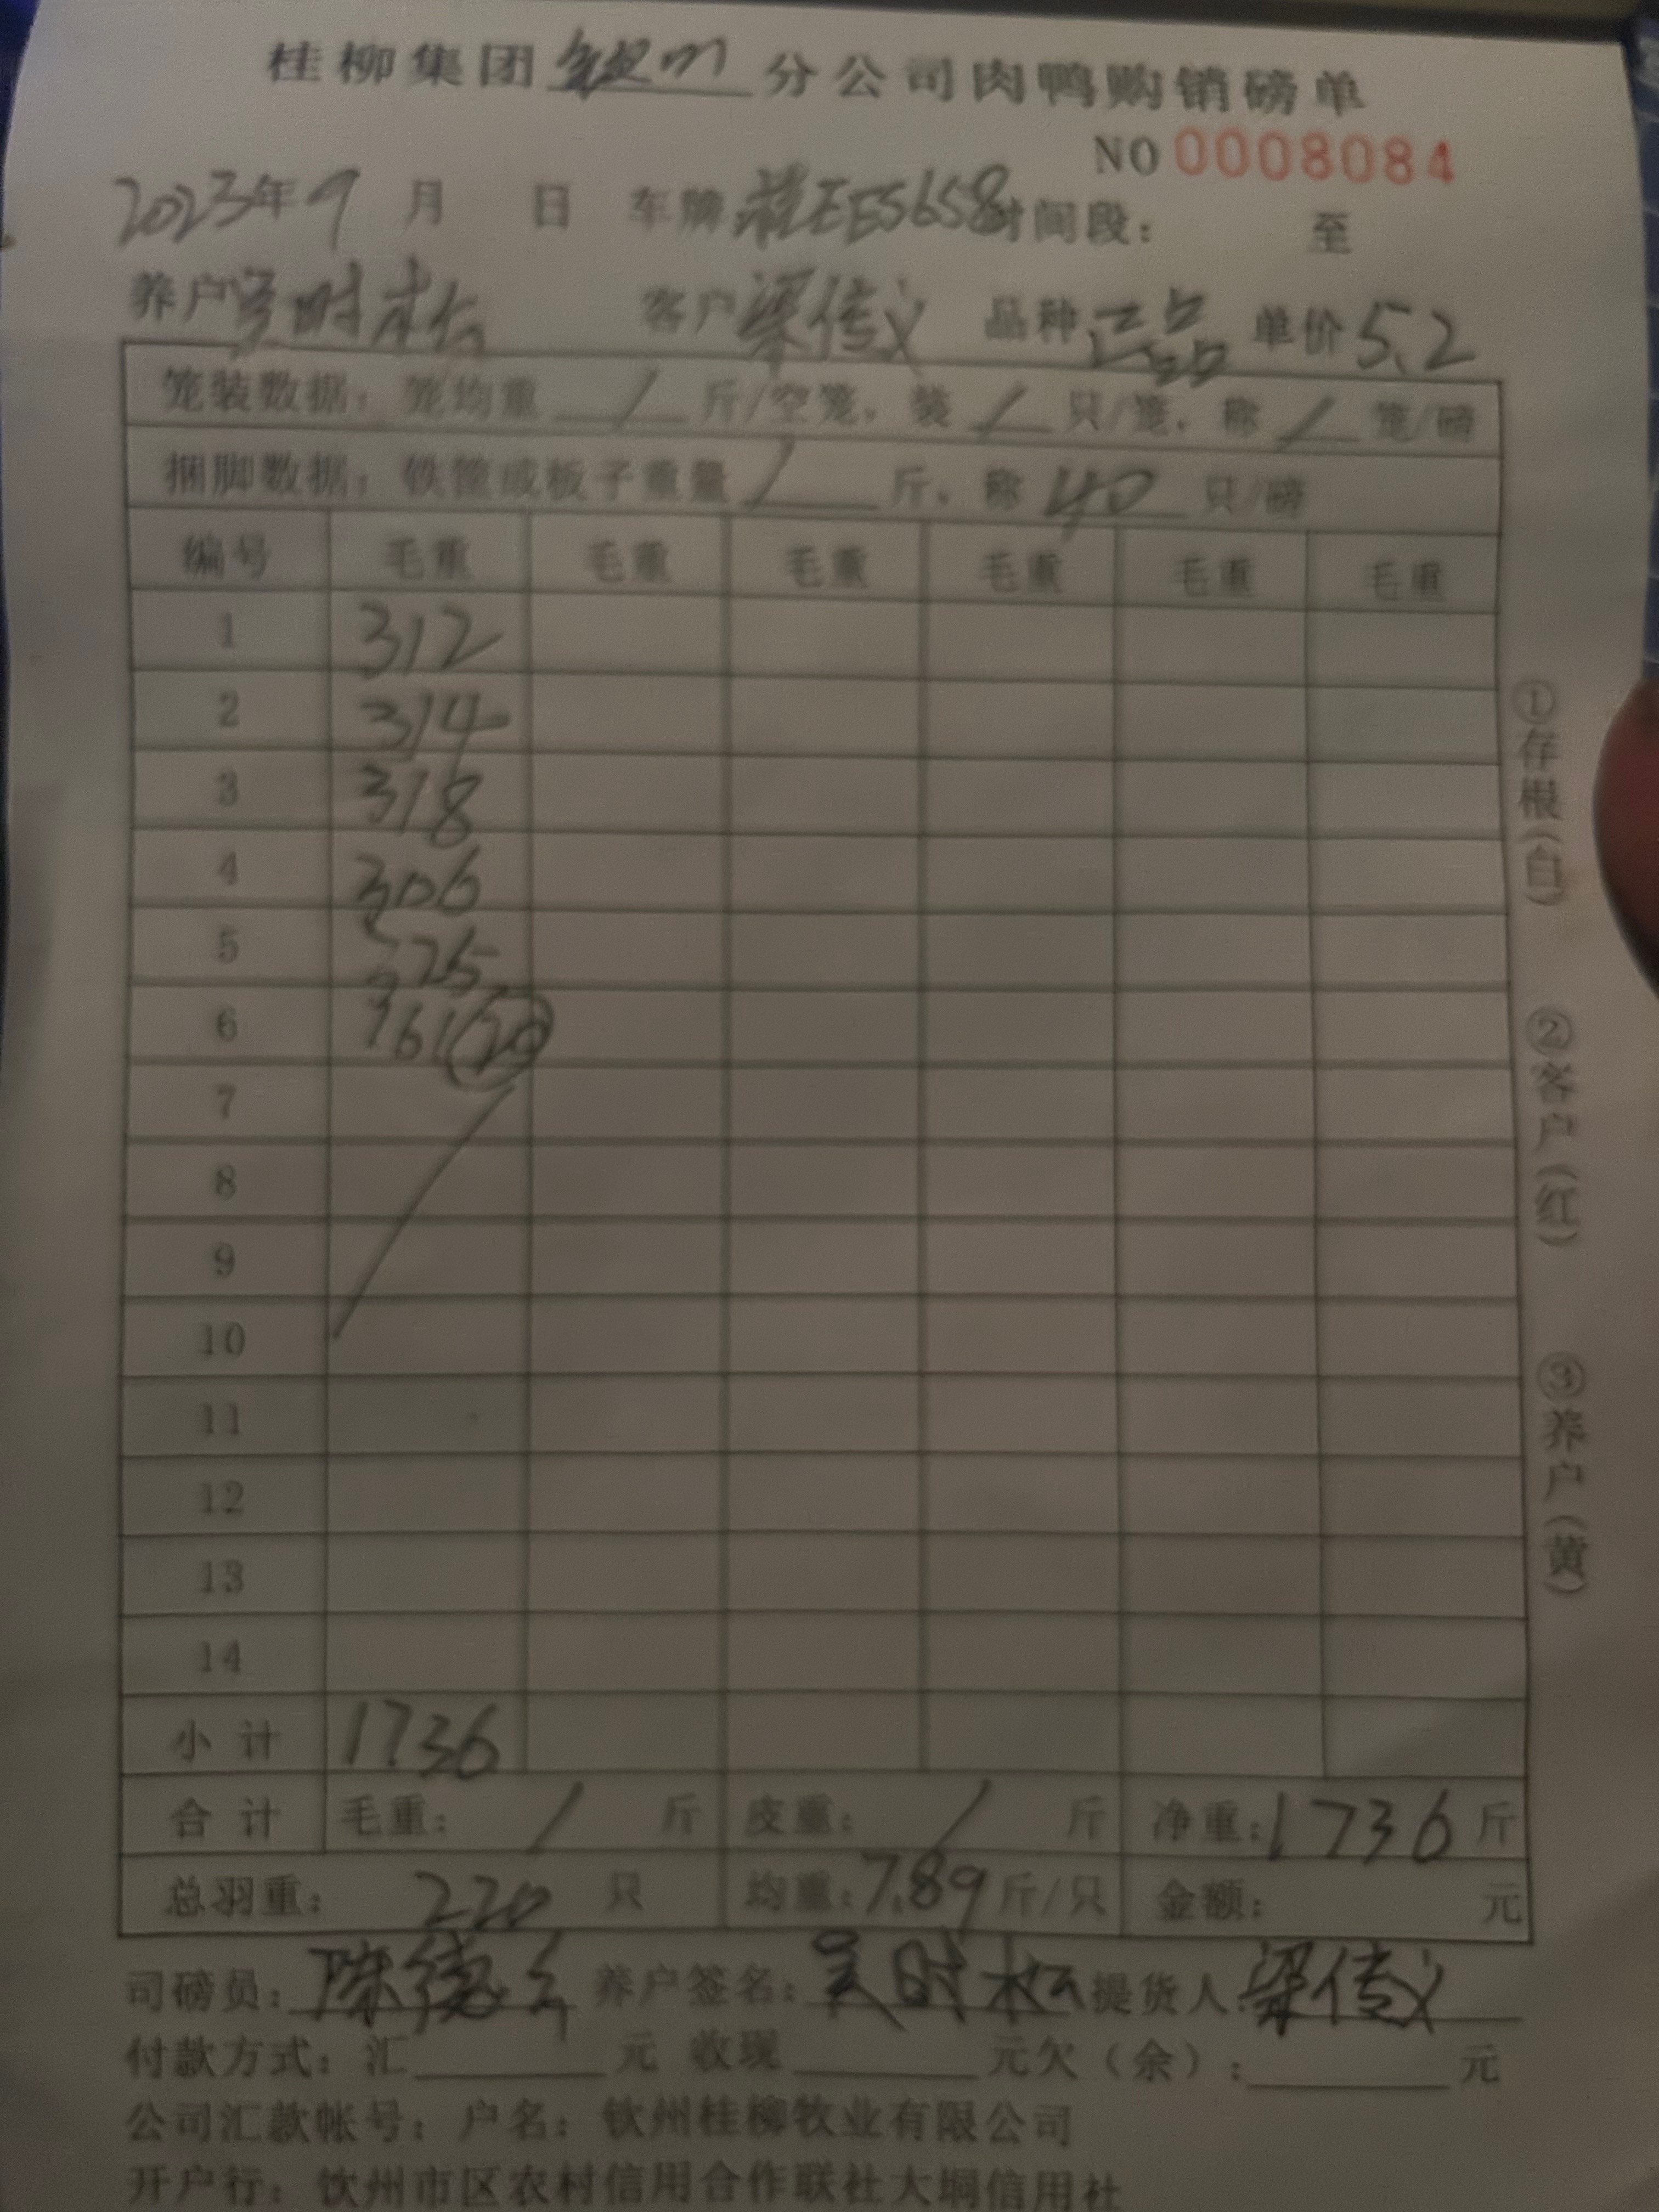 桂柳集团钦州分公司肉鸭购销磅单
NO 0008084
2023年9月 日 车牌 桂EE5658 时间段： 至
养户 吴时松 客户 梁传义 品种 正品 单价 5.2
笼装数据：笼均重 / 斤/空笼，装 / 只/笼，称 / 笼/磅
捆脚数据：铁筐或板子重量 / 斤，称 40 只/磅
编号 毛重 毛重 毛重 毛重 毛重 毛重
1 312
2 314
3 318
4 306
5 325
6 161 (20)
7
8
9
10
11
12
13
14
小计 1736
合计 毛重： / 斤 皮重： / 斤 净重：1736 斤
总羽重： 220 只 均重：7.89 斤/只 金额： 元
司磅员：陈德 养户签名：吴时松 提货人：梁传义
付款方式：汇 元 收现 元欠（余）： 元
公司汇款帐号：户名：钦州桂柳牧业有限公司
开户行：钦州市区农村信用合作联社大垌信用社
①存根（白）
②客户（红）
③养户（黄）